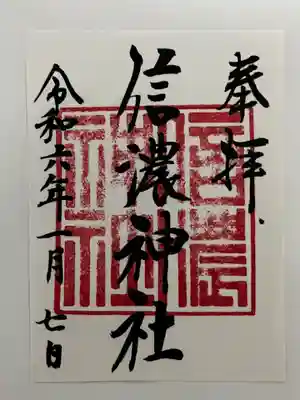 奉拝
信濃神社
令和六年一月七日